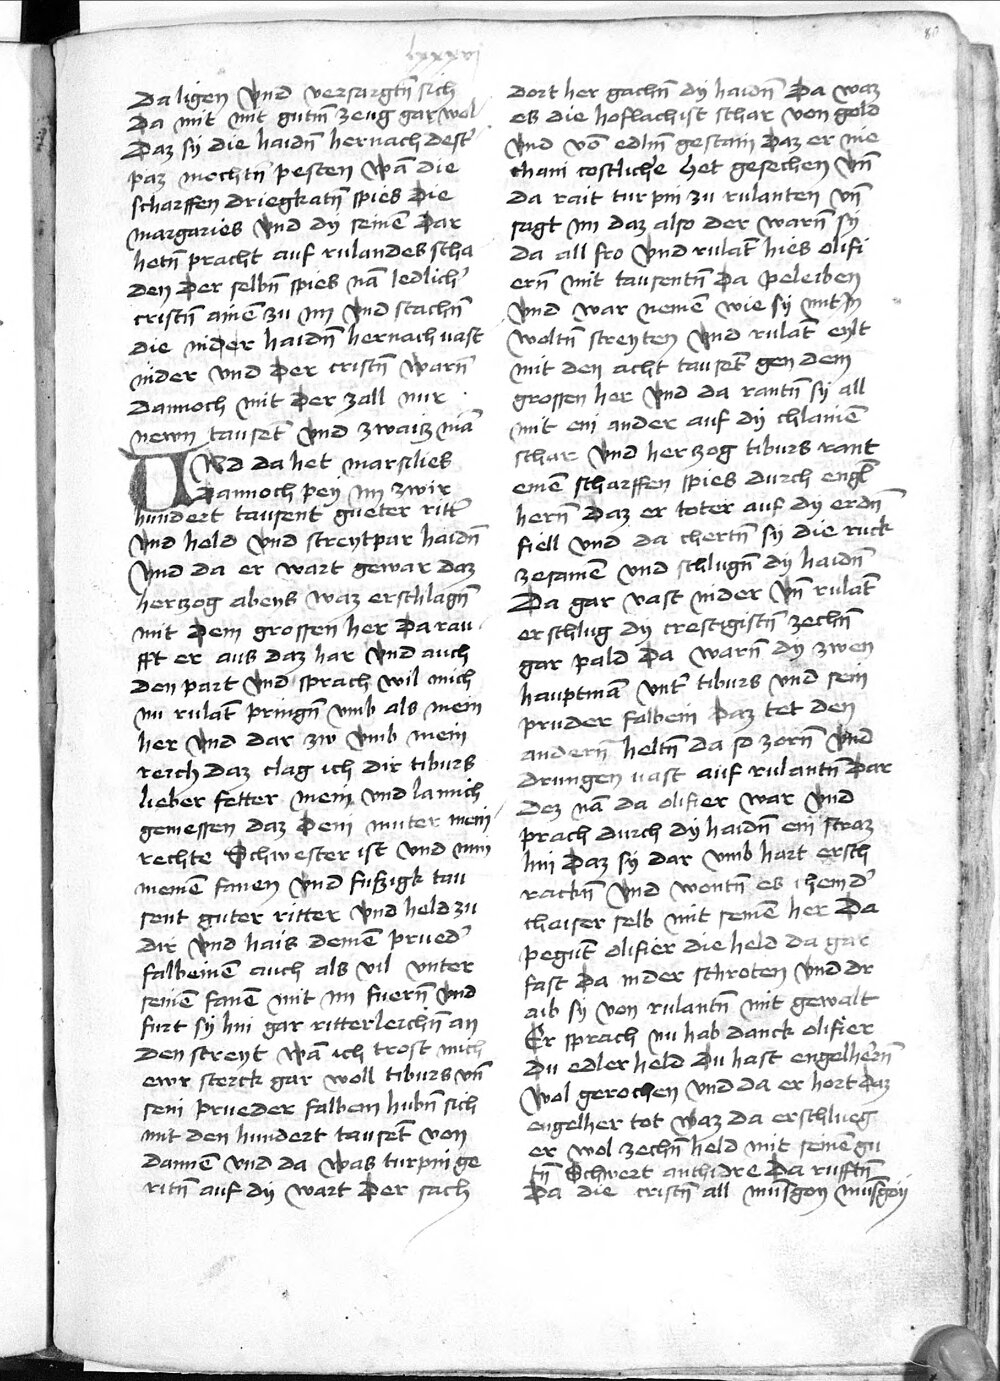 lxxxvj
80
Da ligen Vnd versargtn̄ sich
Da mit mit gutm̄ zeug gar wol
Daz sy die haidn̄ hernach dest'
paz mochtn̄ pesten Wā die
scharffen driegkatn̄ spies Die
margaries Vnd dy seinē Dar
hetn̄ pracht auf rulandes scha
den Der selbn̄ spies nā ledlich'
cristn̄ ainē zu im Vnd stachn̄
die nider haidn̄ hernach vast
nider vnd Der cristn̄ Warn̄
Dannoch mit Der zall nur
newn tauset Vnd zwaiz mā
Vnd da het marsilies
Dannoch pey im zwir
hundert tausent gueter ritt'
Vnd held Vnd streytpar haidn̄
Vnd da er wart gewar daz
herczog abens waz erschlagn̄
mit Dem grossen her Da rau
fft er aus daz har Vnd auch
den part Vnd sprach wil mich
nu rulāt pringn̄ vmb als mein
her Vnd dar zw Vmb mein
reich daz clag ich dir tiburs
lieber fetter mein vnd la mich
geniessen daz Dein muter mein
rechte Schwester ist vnd nim
meinē fanen Vnd fufzigk tau
sent guter ritter Vnd held zu
dir Vnd hais deinē prued'
falbeinē auch als vil vnter
seinē fanē mit im fuern̄ Vnd
furt sy hin gar ritterleichn̄ an
den streyt Wā ich trost mich
ewr sterck gar woll tiburs vn̄
sein prueder falbein hubn̄ sich
mit den hundert tausēt von
dannē vnd da Was turpin ge
ritn̄ auf dy Wart Der sach
dort her gachn̄ dy haidn̄ Da waz
es die hoflachist schar von gold
Vnd vō edlm̄ gestain Daz er nie
chain costliche het gesechen Vn̄
da rait turpin zu rulanten Vn̄
sagt im daz also der warn̄ sy
da all fro Vnd rulāt hies olifi
ern̄ mit tausentn̄ Da peleiben
Vnd war nemē wie sy mit in
woltn̄ streyten Vnd rulāt eylt
mit den acht tausēt gen dem
grossen her Vnd da rantn̄ sy all
mit ein ander auf dy chlainē
schar Vnd herzog tiburs rant
einē scharffen spies durch engl
hern̄ Daz er toter auf dy erdn̄
fiell Vnd da chertn̄ sy die ruck
zesamē vnd schlugn̄ dy haidn̄
Da gar vast nider Vn̄ rulāt
erschlug dy crestigistn̄ zechn̄
gar pald Da warn̄ dy zwen
hauptmā vnt' tiburs vnd sein
pruder falbein Daz tet den
andern̄ heltn̄ da so zorn̄ Vnd
drungen vast auf rulantn̄ Dar
Dez nā da olifier war Vnd
prach durch dy haidn̄ ein straz
hin Daz sy dar vmb hart ersch
rackn̄ Vnd wontn̄ es chem d'
chaiser selb mit seinē her Da
pegūt olifier die held da gar
fast Da nider schroten Vnd dr
aib sy von rulantn̄ mit gewalt
Er sprach nu hab danck olifier
du edler held du hast engelhern̄
Wol gerochen vnd da er hort Daz
engelher tot waz da erschlueg
er wol zechn̄ held mit seinē gu
tn̄ Schwert anthidre Da rufftn̄
Da die cristn̄ all musgoy musgoy